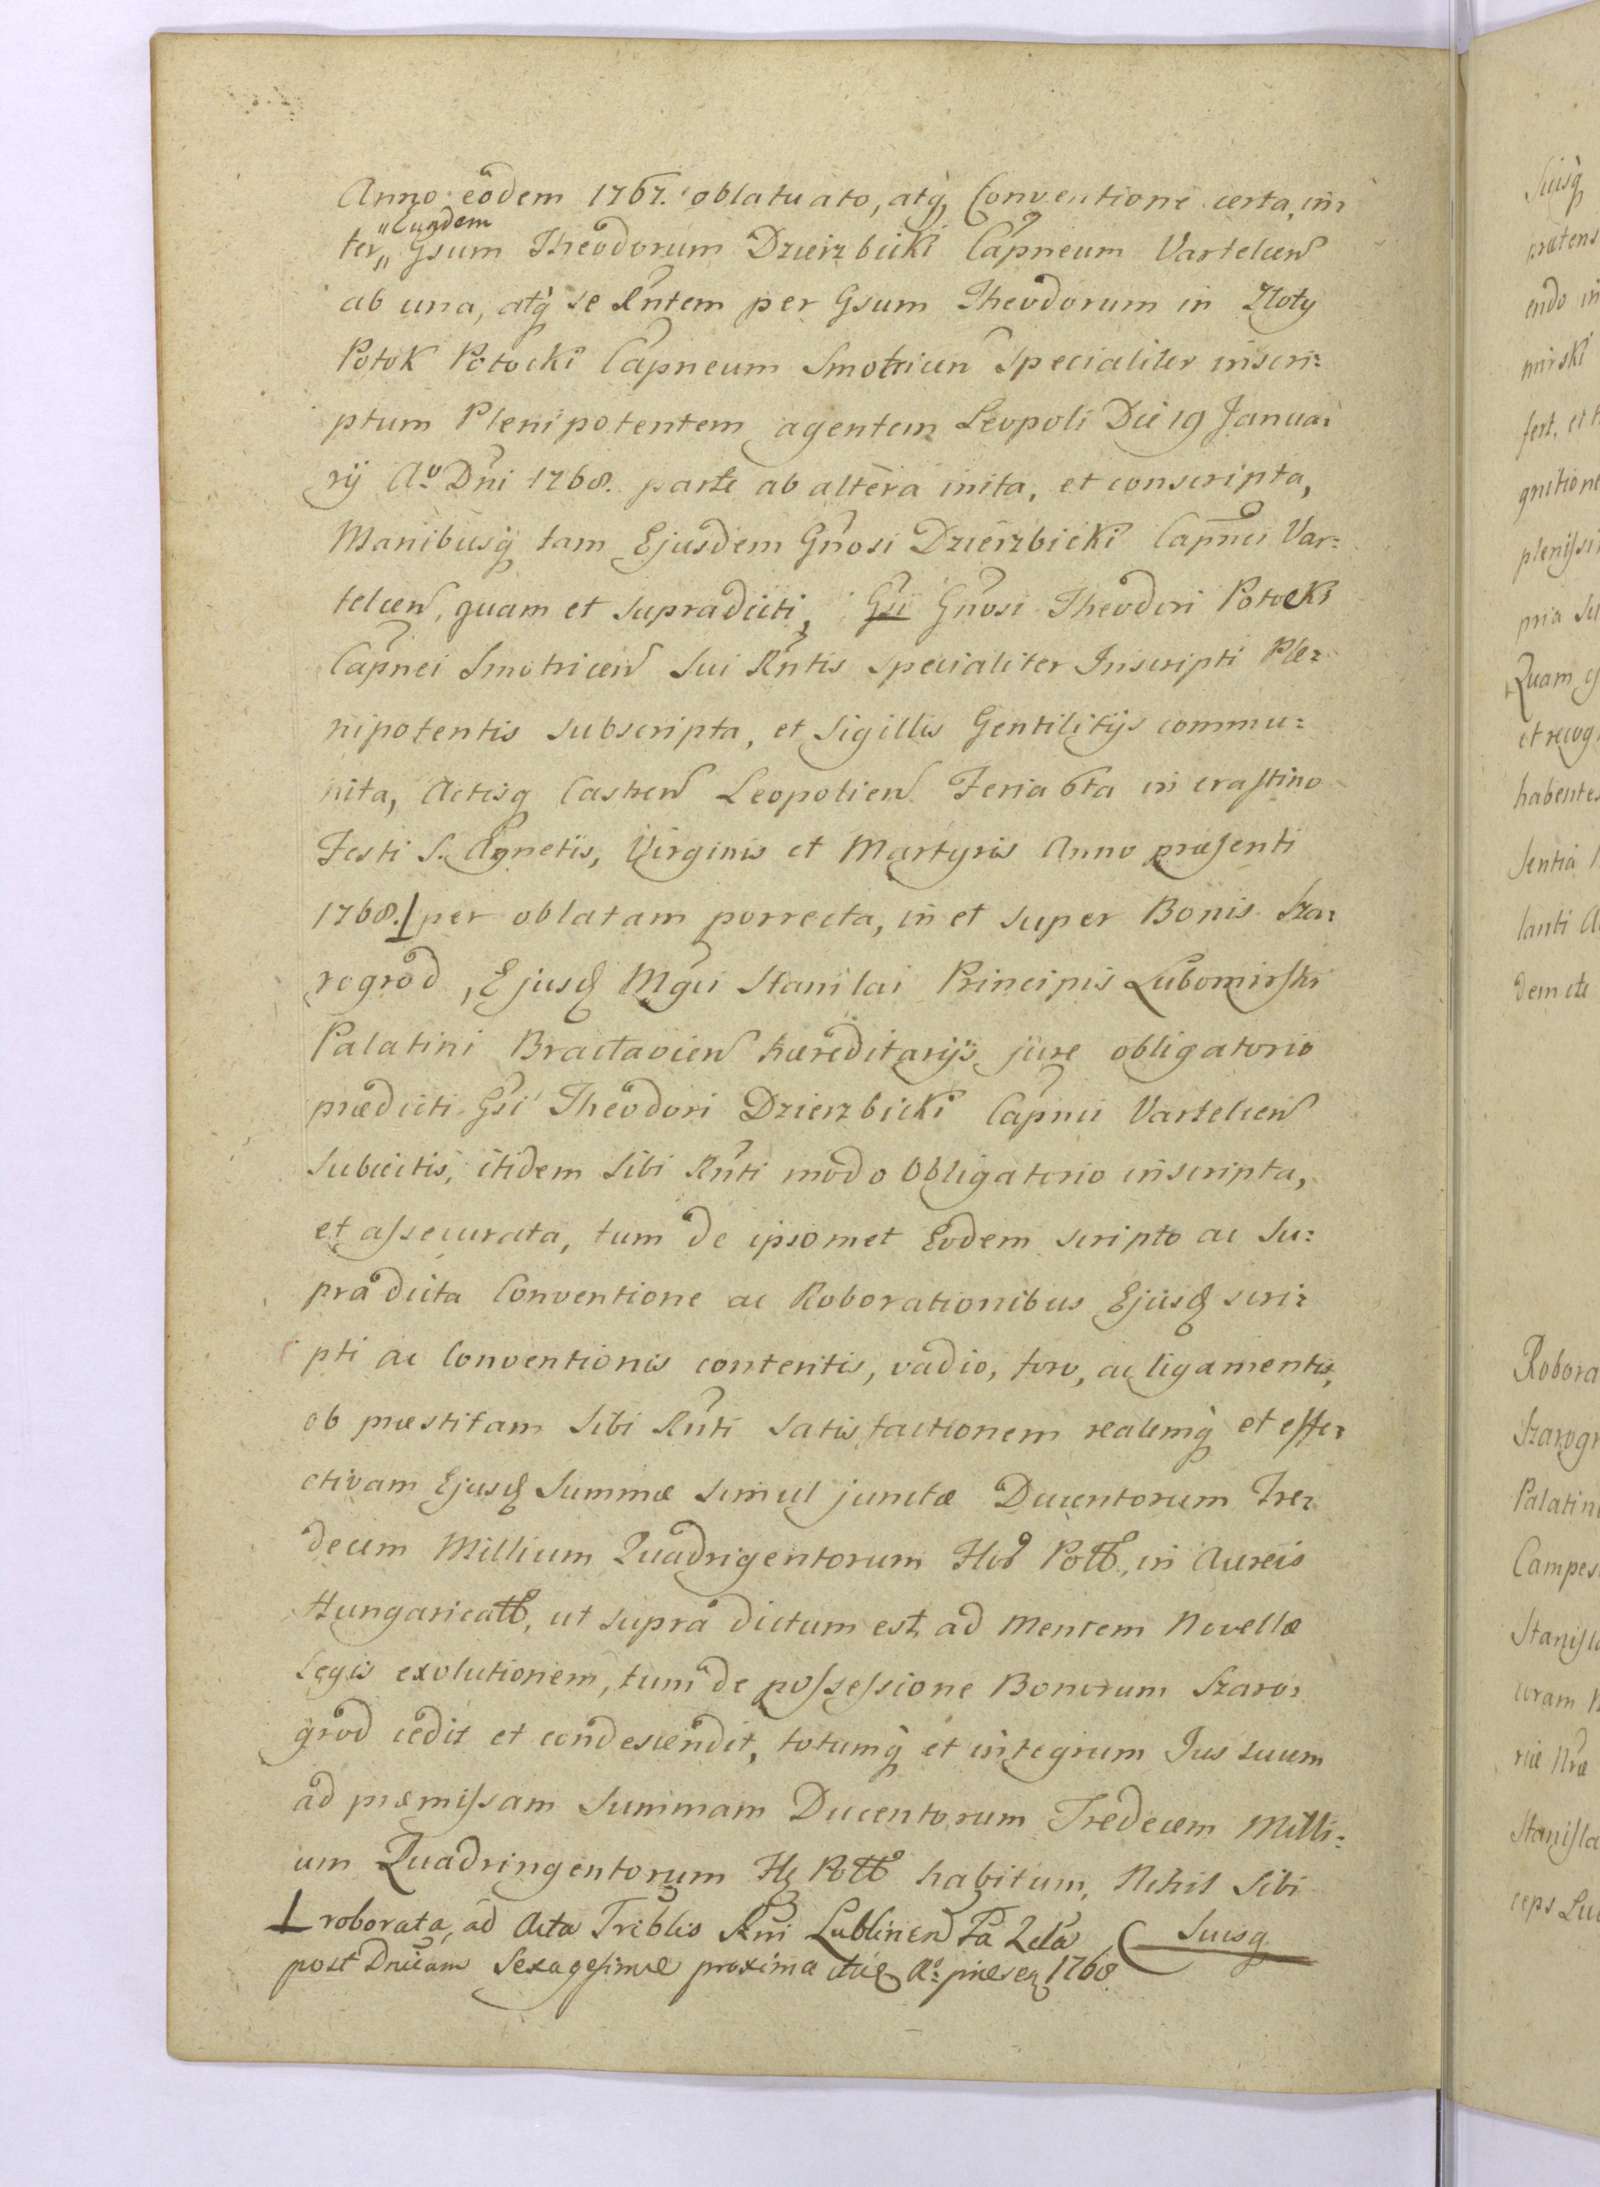 Anno eodem 1767. oblatuato, atq Conventione certa, in=
"Eundem
ter" Gsum Theodorum Dzierzbicki Capneum Vartelcen
ab una, atq se Rntem per Gsum Theodorum in Zloty
Potok Potocki Capneum Smotricen Specialiter inscri=
ptum Plenipotentem agentem Leopoli Die 19 Janua=
rij Ao Dni 1768. parte ab altera inita, et conscripta,
Manibusq tam Ejusdem Gnosi Dzierzbicki Capnei Var=
telcen, quam et supradicti, Gsi Gnosi Theodori Potocki
Capnei Smotricen Sui Rntis specialiter Inscripti Ple=
nipotentis subscripta, et Sigillis Gentilitijs commu=
nita, Actisq Castren Leopolien Feria 6ta in crastino
Festi S. Agnetis, Virginis et Martyris Anno præsenti
1768. ⊥ per oblatam porrecta, in et super Bonis Sza=
rogrod, Ejusd Mgci Stanilai Principis Lubomirski
Palatini Bractavien hæreditarijs jure obligatorio
prædicti Gsi Theodori Dzierzbicki Capnei Vartelcen
Subjectis, itidem Sibi Rnti modo Obligatorio inscripta,
et assecurata, tum de ipsomet Eodem scripto ac Su=
pradicta Conventione ac Roborationibus Ejusd scri=
pti ac Conventionis contentis, vadio, foro, ac ligamentis,
ob præstitam Sibi Rnti Satisfactionem realemq et effe=
ctivam Ejusd Summæ simul junctæ Ducentorum Tre=
decim Millium Quadrigentorum Pol, in Aureis
Hungarical, ut supra dictum est, ad Mentem Novellæ
Legis exolutionem, tum de possessione Bonorum Szaro=
grod cedit et condescendit, totumq et integrum Jus suum
ad præmissam Summam Ducentorum Tredecem Milli=
um Quadringentorum Pol habitum, Nihil Sibi
⊥ roborata, ad Acta Treblis Rni Lublinen Fa 2da
Suisq
post Dnicam Sexagesimæ proxima Ao 1768.